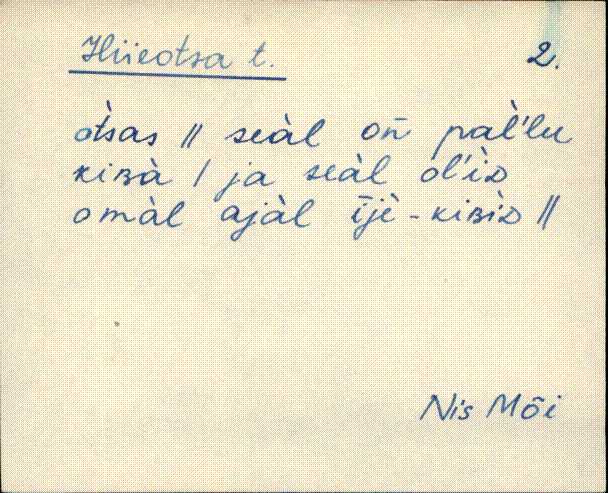 Hiieotsa t. 2.
òtsas || seàl oñ pal̀'lu
kiʙà / ja seàl ol'iᴅ
omàl ajàl ījè-kiʙìᴅ ||
Nis Mõi